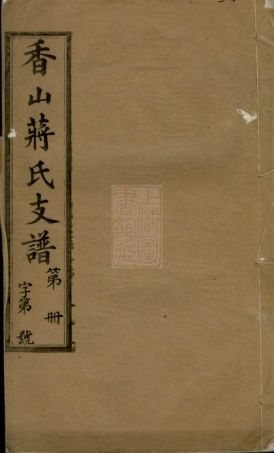 香山蔣氏支譜
第 冊
字第 號
上海圖
書館藏